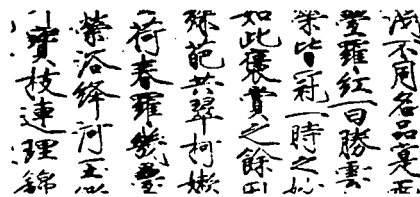 淺不同名品實兩
疊羅紅一曰勝雲
榮皆冠一時之妙
如此褒賞之餘因
殊葩共翠柯嫩
荷春羅幾疊
縈浴絳河玉
寶枝連理錦